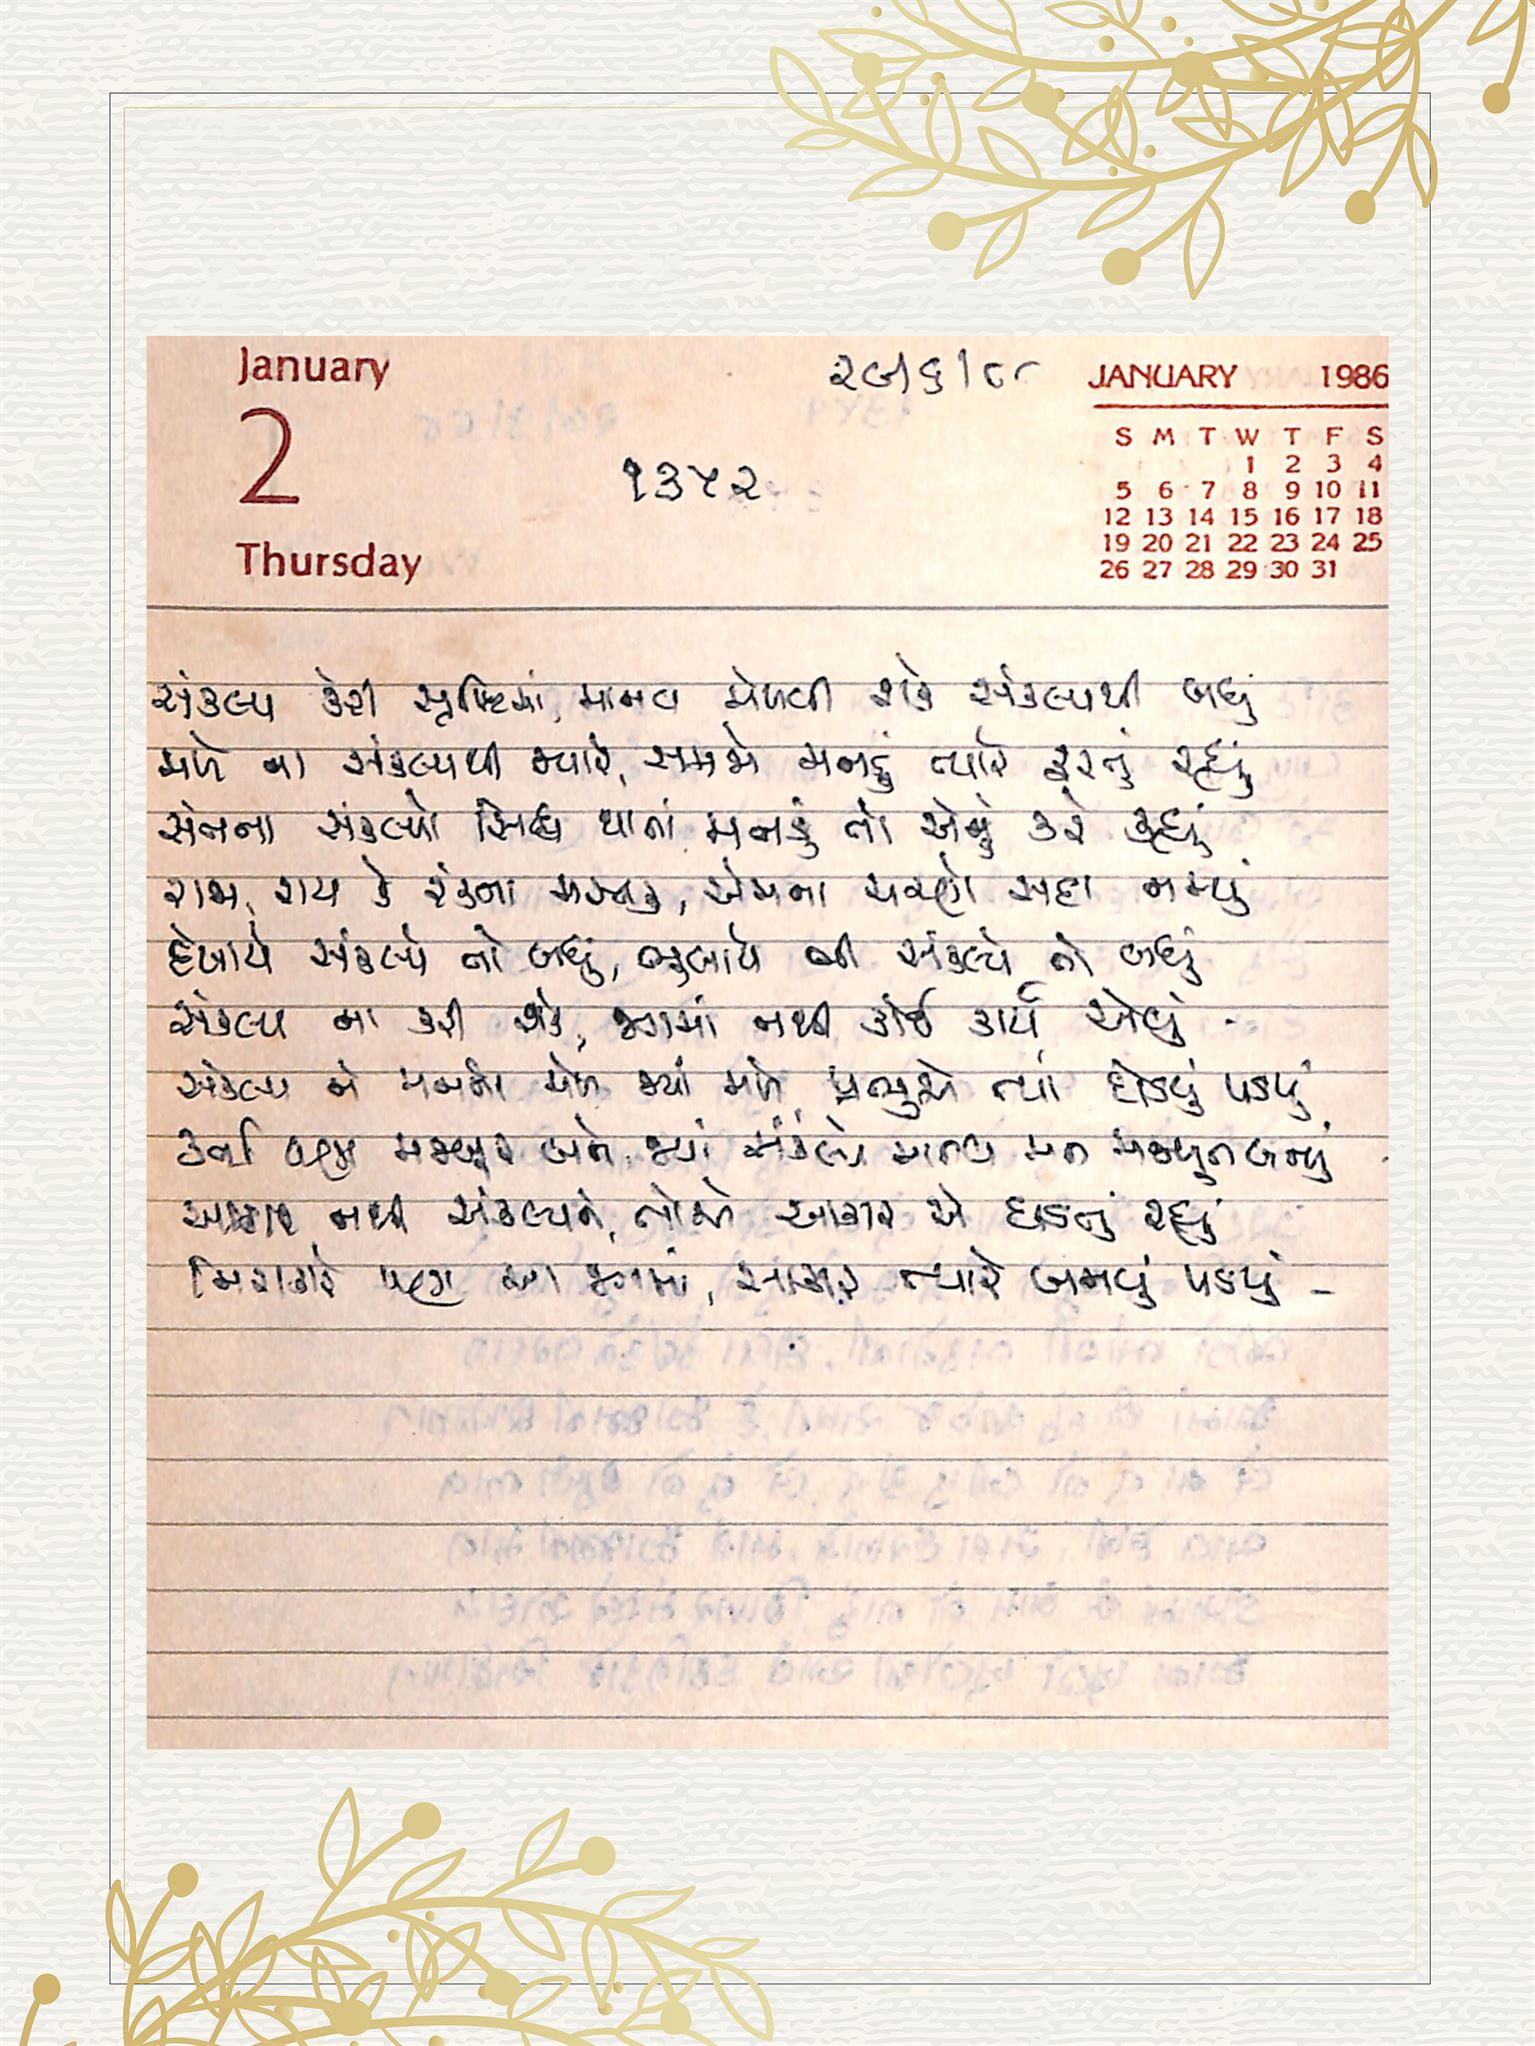 January
2
Thursday
૨૯/૬/૮૮
૧૩૫૨
JANUARY 1986
S M T W T F S
1 2 3 4
5 6 7 8 9 10 11
12 13 14 15 16 17 18
19 20 21 22 23 24 25
26 27 28 29 30 31
સંકલ્પ કેરી સૃષ્ટિમાં, માનવ મેળવી શકે સંકલ્પથી બધું
મળે ના સંકલ્પથી જ્યારે, સમજો મનડું ત્યારે ફરતું રહ્યું
સંતના સંકલ્પો સિદ્ધ થાતાં મનડું તો એનું કરે કહ્યું
રામ, રાય કે રંકના મસ્તક, એમના ચરણે સદા નમ્યું
દેખાયે સંકલ્પે તો બધું, ભુલાયે ભી સંકલ્પે તો બધું
સંકલ્પ ના કરી શકે, જગમાં નથી કોઈ કાર્ય એવું -
સંકલ્પ ને મનનો મેળ જ્યાં મળે, પ્રભુએ ત્યાં દોડવું પડયું
કર્તા પણ મજબૂર બને, જ્યાં સંકલ્પે માનવ મન મજબૂત બન્યું
આકાર નથી સંકલ્પને, તોયે આકાર એ ઘડતું રહ્યું
નિરાકારે પણ આ જગમાં, સાકાર ત્યારે બનવું પડયું -